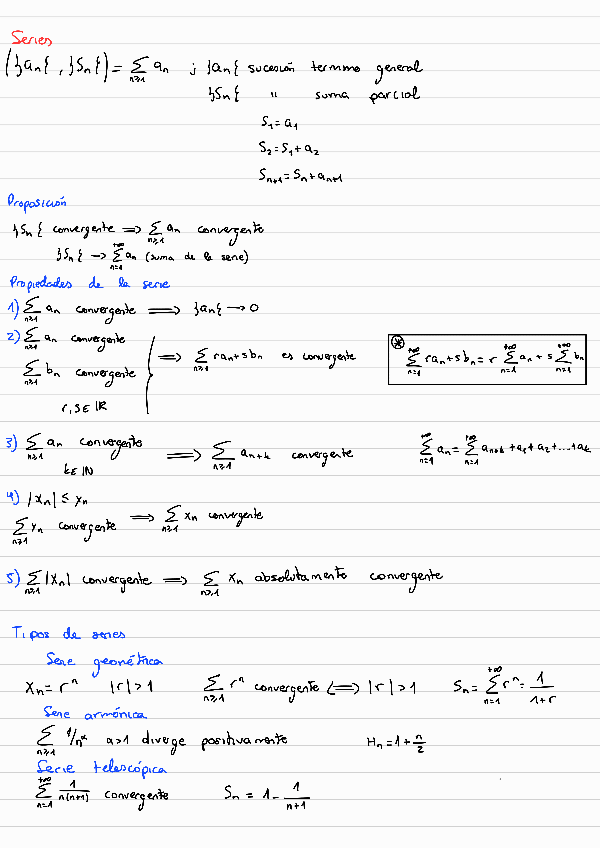 Series
(}an{ , }Sn{) = ∑n≥1 an ; }an{ sucesión termino general
}Sn{ " suma parcial
S1 = a1
S2 = S1 + a2
Sn+1 = Sn + an+1
Proposición
}Sn{ convergente ⟹ ∑n≥1 an convergente
}Sn{ → ∑n=1^+∞ an (suma de la serie)
Propiedades de la serie
1) ∑n≥1 an convergente ⟹ }an{ → 0
2) ∑n≥1 an convergente
∑n≥1 bn convergente
r, s ∈ ℝ
⟹ ∑n≥1 ran + sbn es convergente
⊛ ∑n=1^+∞ ran + sbn = r ∑n=1^+∞ an + s ∑n=1^+∞ bn
3) ∑n≥1 an convergente
k ∈ ℕ
⟹ ∑n≥1 an+k convergente
∑n=1^+∞ an = ∑n=1^+∞ an+k + a1 + a2 + ... + ak
4) |xn| ≤ yn
∑n≥1 yn convergente ⟹ ∑n≥1 xn convergente
5) ∑n≥1 |xn| convergente ⟹ ∑n≥1 xn absolutamente convergente
Tipos de series
Serie geométrica
xn = r^n |r| > 1 ∑n≥1 r^n convergente ⟺ |r| > 1 Sn = ∑n=1^+∞ r^n = 1/(1+r)
Serie armónica
∑n≥1 1/n^α α>1 diverge positivamente Hn = 1 + n/2
Serie telescópica
∑n=1^+∞ 1/(n(n+1)) convergente Sn = 1 - 1/(n+1)